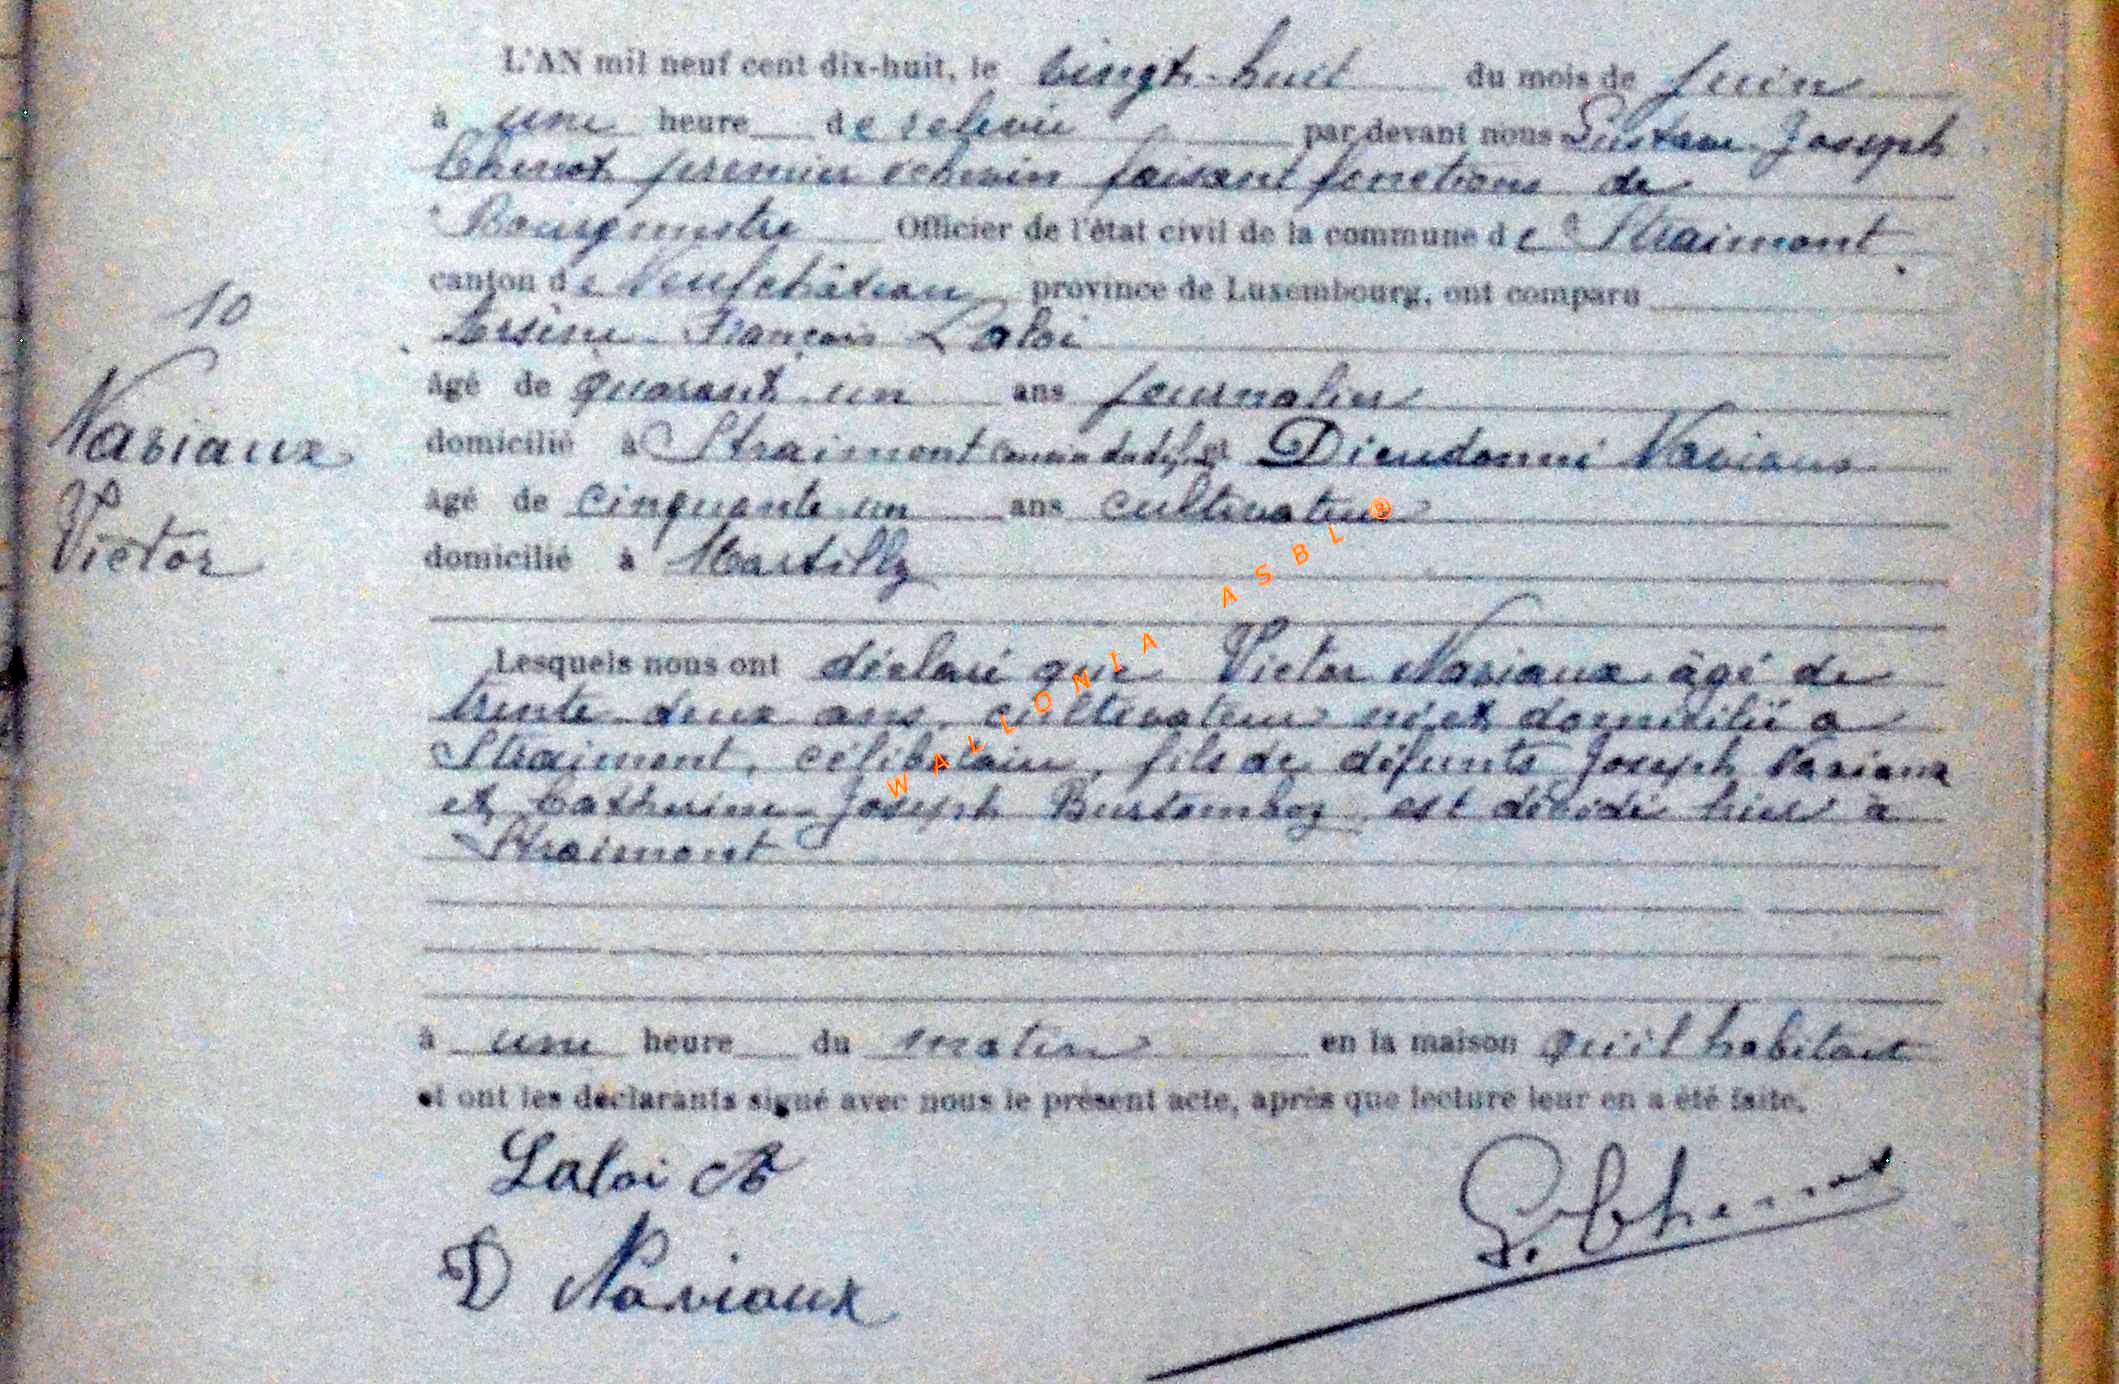 L'AN mil neuf cent dix-huit, le vingt-huit du mois de juin
à une heure de relevée par devant nous Gustave Joseph
Chenot premier échevin faisant fonctions de
Bourgmestre Officier de l'état civil de la commune de Straimont
canton de Neufchâteau province de Luxembourg, ont comparu
10
Arsène François Laloi
âgé de quarante un ans journalier
Naviaux
domicilié à Straimont cousin du déft et Dieudonné Naviaux
âgé de cinquante un ans cultivateur
Victor
domicilié à Martilly
Lesquels nous ont déclaré que Victor Naviaux âgé de
trente deux ans, cultivateur né et domicilié à
Straimont, célibataire, fils de défunts Joseph Naviaux
et Catherine Joseph est décédé hier à
Straimont
à une heure du matin en la maison qu'il habitait
et ont les déclarants signé avec nous le présent acte, après que lecture leur en a été faite.
Laloi A
G. Chenot
D Naviaux
WALLONIA ASBL ®